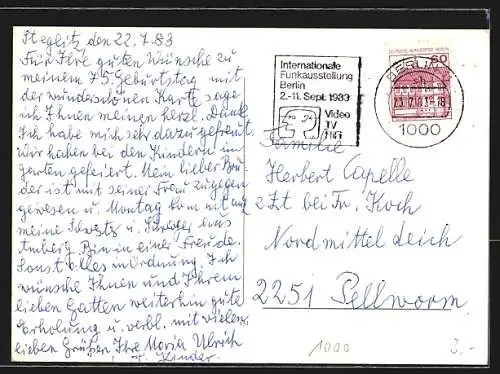 Steglitz den 22.7.83
Für Ihre guten Wünsche zu
meinem 75 Geburtstag mit
der wunderschönen Karte sage
ich Ihnen meinen herzl. Dank
Ich habe mich sehr dazu gefreut
wir haben bei den Kindern im
garten gefeiert. Mein lieber Bru
der ist mit seiner Frau zugegen
gewesen u. Montag kom mit aug
meine Schwest u. Schwager aus
Amberg. Bin in einer Freude.
Sonst alles in Ordnung. Ich
wünsche Ihnen und Ihrem
lieben Gatten weiterhin gute
Erholung u. verbl. mit vielen
lieben Grüßen Ihre Maria Ulrich
u. Kinder.
Internationale
Funkausstellung
Berlin
2.-11. Sept. 1983
Video
TV
HiFi
DEUTSCHE BUNDESPOST BERLIN
60
BERLIN
1000
Familie
Herbert Capelle
z Zt bei Fr. Koch
Nordmitteldeich
2251 Pellworm
1000
3.-